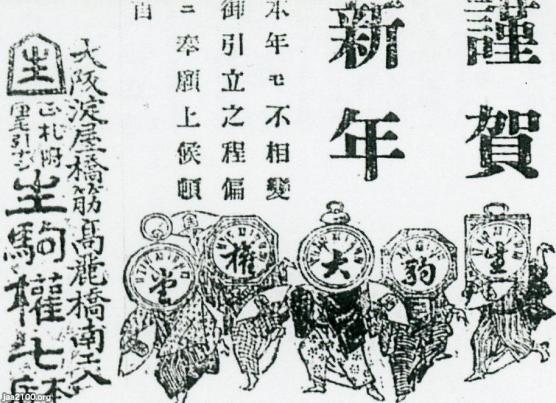 謹賀
新年
本年モ不相變
御引立之程偏
ニ奉願上候頓
首
生
駒
大
權
堂
大阪淀屋橋筋高麗橋南エ入
生
正札附
生駒權七
jaa2100.org